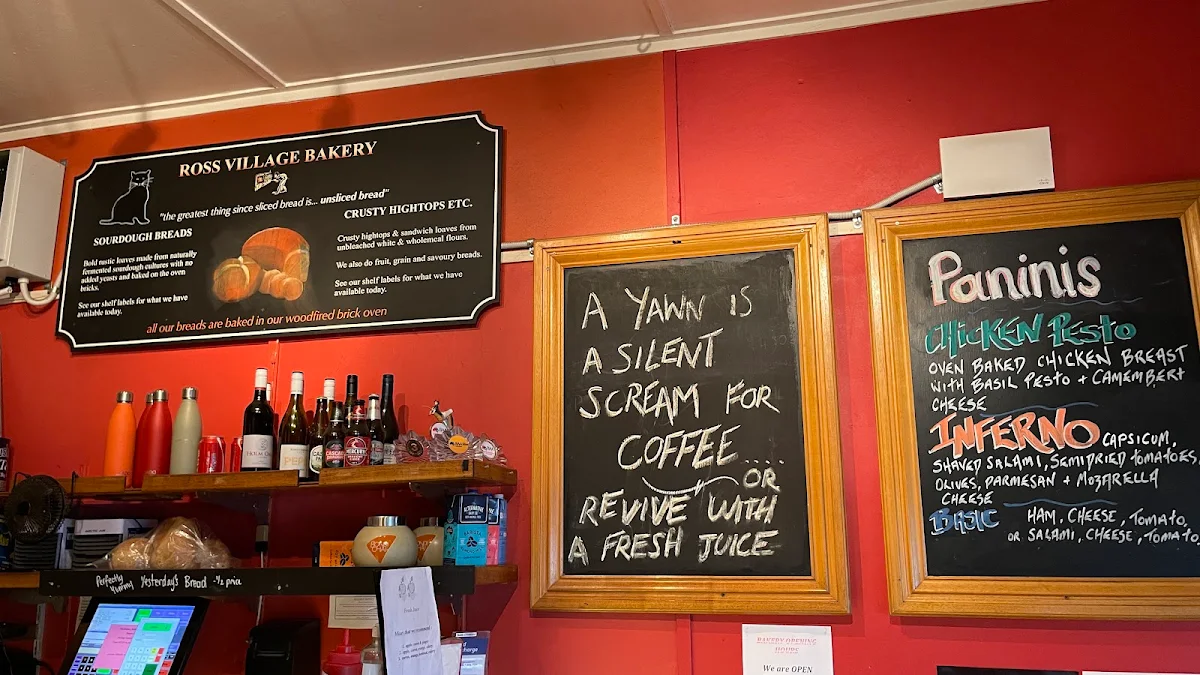 ROSS VILLAGE BAKERY
"the greatest thing since sliced bread is... unsliced bread"
SOURDOUGH BREADS
Bold rustic loaves made from naturally
fermented sourdough cultures with no
added yeasts and baked on the oven
bricks.
See our shelf labels for what we have
available today.
CRUSTY HIGHTOPS ETC.
Crusty hightops & sandwich loaves from
unbleached white & wholemeal flours.
We also do fruit, grain and savoury breads.
See our shelf labels for what we have
available today.
all our breads are baked in our woodfired brick oven
A YAWN IS
A SILENT
SCREAM FOR
COFFEE....
OR
REVIVE WITH
A FRESH JUICE
Paninis
CHICKEN PESTO
OVEN BAKED CHICKEN BREAST
WITH BASIL PESTO + CAMEMBERT
CHEESE
INFERNO CAPSICUM,
SHAVED SALAMI, SEMIDRIED TOMATOES,
OLIVES, PARMESAN + MOZARELLA
CHEESE
BASIC HAM, CHEESE, TOMATO
OR SALAMI, CHEESE, TOMATO,
Perfectly
Yummy Yesterday's Bread - ½ price
BAKERY OPENING
HOURS
We are OPEN